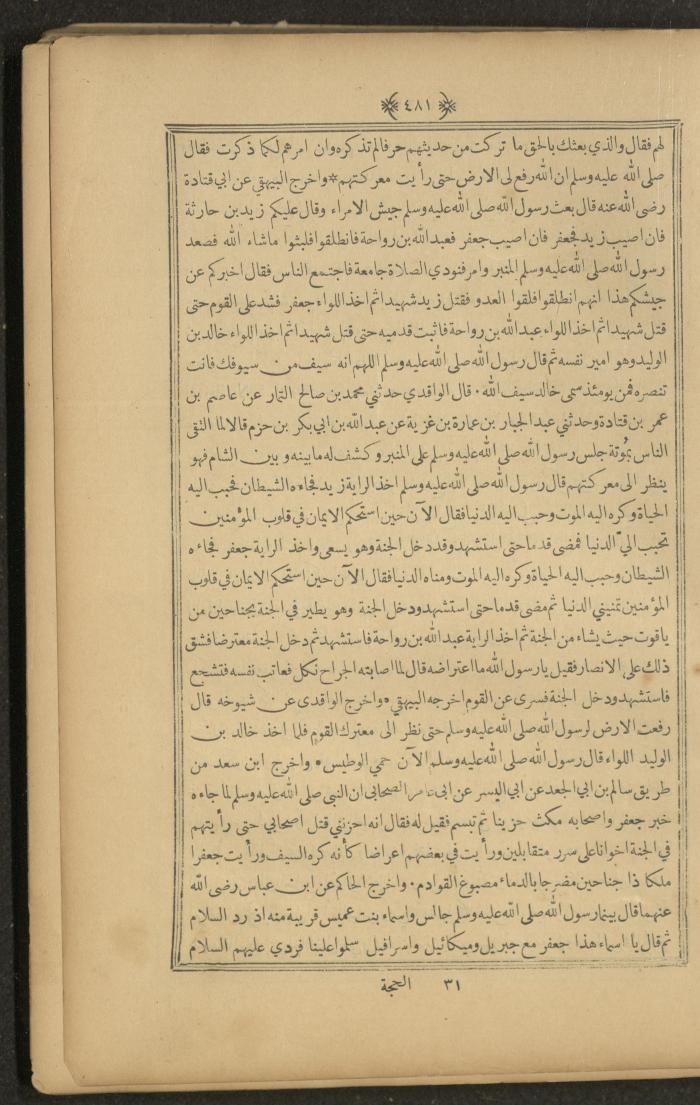 ٤٨١
لهم فقال والذي بعثك بالحق ما تركت من حديثهم حرفا لم تذكره وان امرهم لكما ذكرت فقال
صلى الله عليه وسلم ان الله رفع لي الارض حتى رأيت معركتهم * واخرج البيهقي عن ابي قتادة
رضى الله عنه قال بعث رسول الله صلى الله عليه وسلم جيش الامراء وقال عليكم زيد بن حارثة
فان اصيب زيد فجعفر فان اصيب جعفر فعبد الله بن رواحة فانطلقوا فلبثوا ما شاء الله فصعد
رسول الله صلى الله عليه وسلم المنبر وامر فنودي الصلاة جامعة فاجتمع الناس فقال اخبركم عن
جيشكم هذا انهم انطلقوا فلقوا العدو فقتل زيد شهيدا ثم اخذ اللواء جعفر فشد على القوم حتى
قتل شهيدا ثم اخذ اللواء عبد الله بن رواحة فاثبت قدميه حتى قتل شهيدا ثم اخذ اللواء خالد بن
الوليد وهو امير نفسه ثم قال رسول الله صلى الله عليه وسلم اللهم انه سيف من سيوفك فانت
تنصره فمن يومئذ سمى خالد سيف الله . قال الواقدي حدثني محمد بن صالح التمار عن عاصم بن
عمر بن قتادة وحدثني عبد الجبار بن عمارة بن غزية عن عبد الله بن ابي بكر بن حزم قالا لما التقى
الناس بمُوتة جلس رسول الله صلى الله عليه وسلم على المنبر وكشف له ما بينه وبين الشام فهو
ينظر الى معركتهم قال رسول الله صلى الله عليه وسلم اخذ الراية زيد فجاءه الشيطان فحبب اليه
الحياة وكره اليه الموت وحبب اليه الدنيا فقال الآن حين استحكم الايمان في قلوب المؤمنين
تحبب اليّ الدنيا فمضى قدما حتى استشهد وقد دخل الجنة وهو يسعى واخذ الراية جعفر فجاءه
الشيطان وحبب اليه الحياة وكره اليه الموت ومناه الدنيا فقال الآن حين استحكم الايمان في قلوب
المؤمنين تمنيني الدنيا ثم مضى قدما حتى استشهد ودخل الجنة وهو يطير في الجنة بجناحين من
ياقوت حيث يشاء من الجنة ثم اخذ الراية عبد الله بن رواحة فاستشهد ثم دخل الجنة معترضا فشق
ذلك على الانصار فقيل يا رسول الله ما اعتراضه قال لما اصابته الجراح نكل فعاتب نفسه فتشجع
فاستشهد ودخل الجنة فسرى عن القوم اخرجه البيهقي * واخرج الواقدى عن شيوخه قال
رفعت الارض لرسول الله صلى الله عليه وسلم حتى نظر الى معترك القوم فلما اخذ خالد بن
الوليد اللواء قال رسول الله صلى الله عليه وسلم الآن حمي الوطيس * واخرج ابن سعد من
طريق سالم بن ابي الجعد عن ابي اليسر عن ابى عامر الصحابى ان النبي صلى الله عليه وسلم لما جاءه
خبر جعفر واصحابه مكث حزينا ثم تبسم فقيل له فقال انه احزنني قتل اصحابي حتى رأيتهم
في الجنة اخوانا على سرر متقابلين ورأيت في بعضهم اعراضا كأنه كره السيف ورأيت جعفرا
ملكا ذا جناحين مضرجا بالدماء مصبوغ القوادم . واخرج الحاكم عن ابن عباس رضى الله
عنهما قال بينما رسول الله صلى الله عليه وسلم جالس واسماء بنت عميس قريبة منه اذ رد السلام
ثم قال يا اسماء هذا جعفر مع جبريل وميكائيل واسرافيل سلموا علينا فردي عليهم السلام
٣١ الحجة